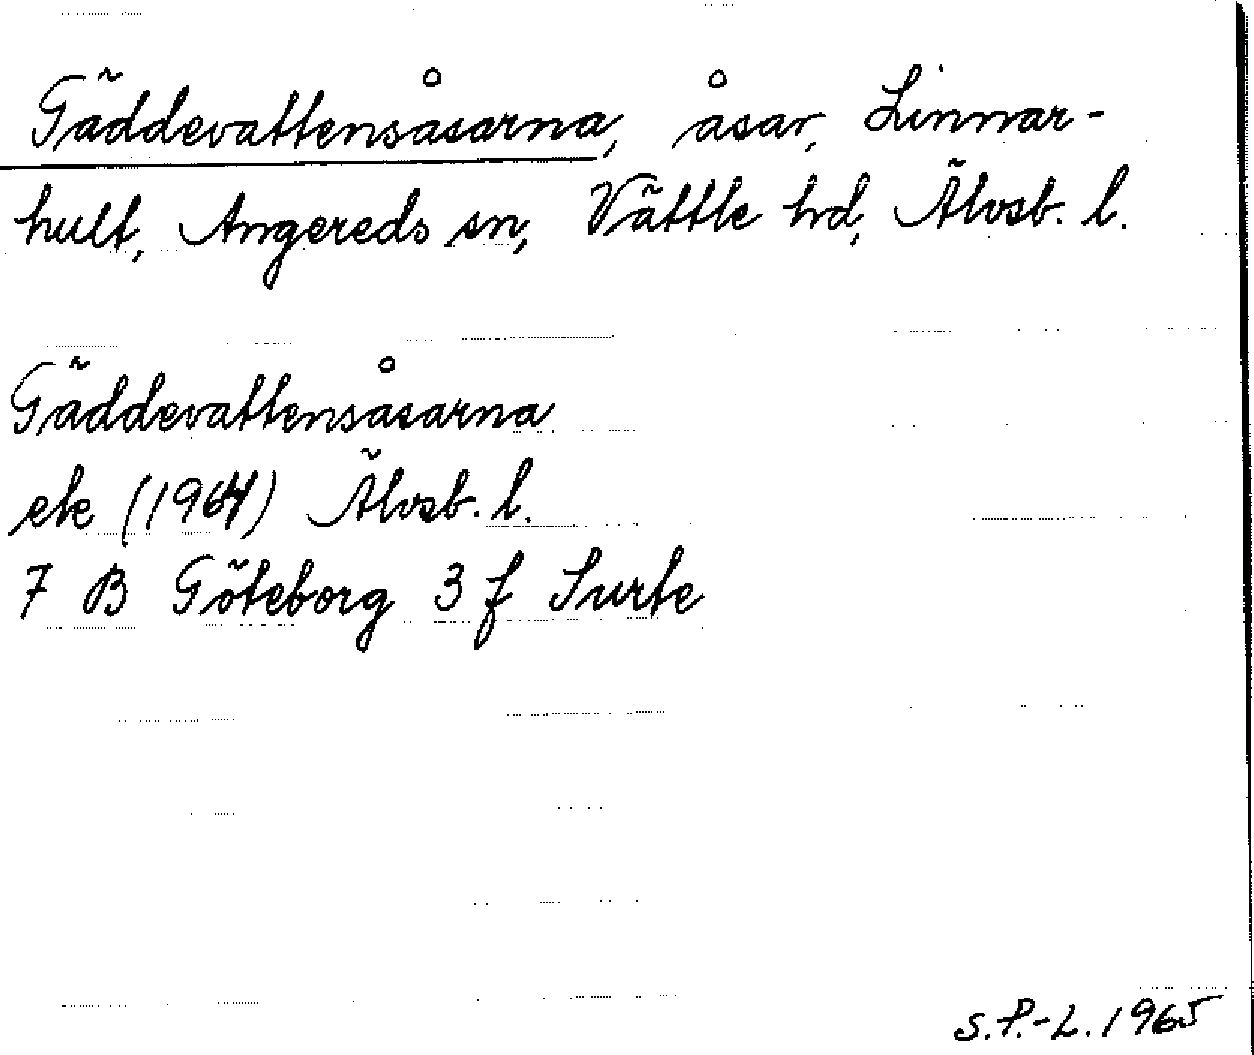 Gäddevattensåsarna, åsar, Linnar-
hult, Angereds sn, Vättle hd, Älvsb. l.
Gäddevattensåsarna
ek (1964) Älvsb. l.
7 B Göteborg 3 f Surte
S.P.-L. 1965